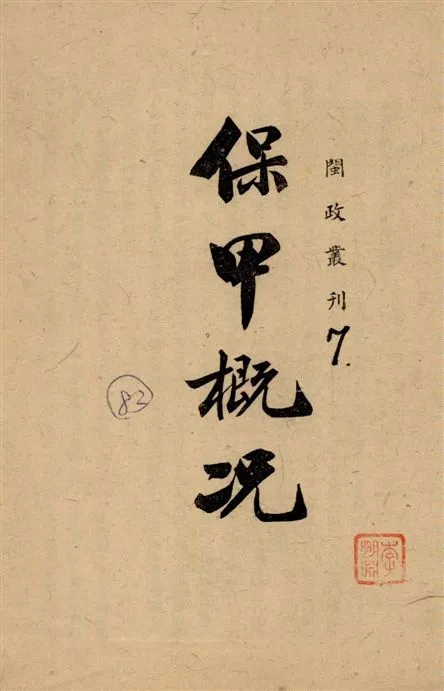 閩政叢刊 7.
保甲概况
82